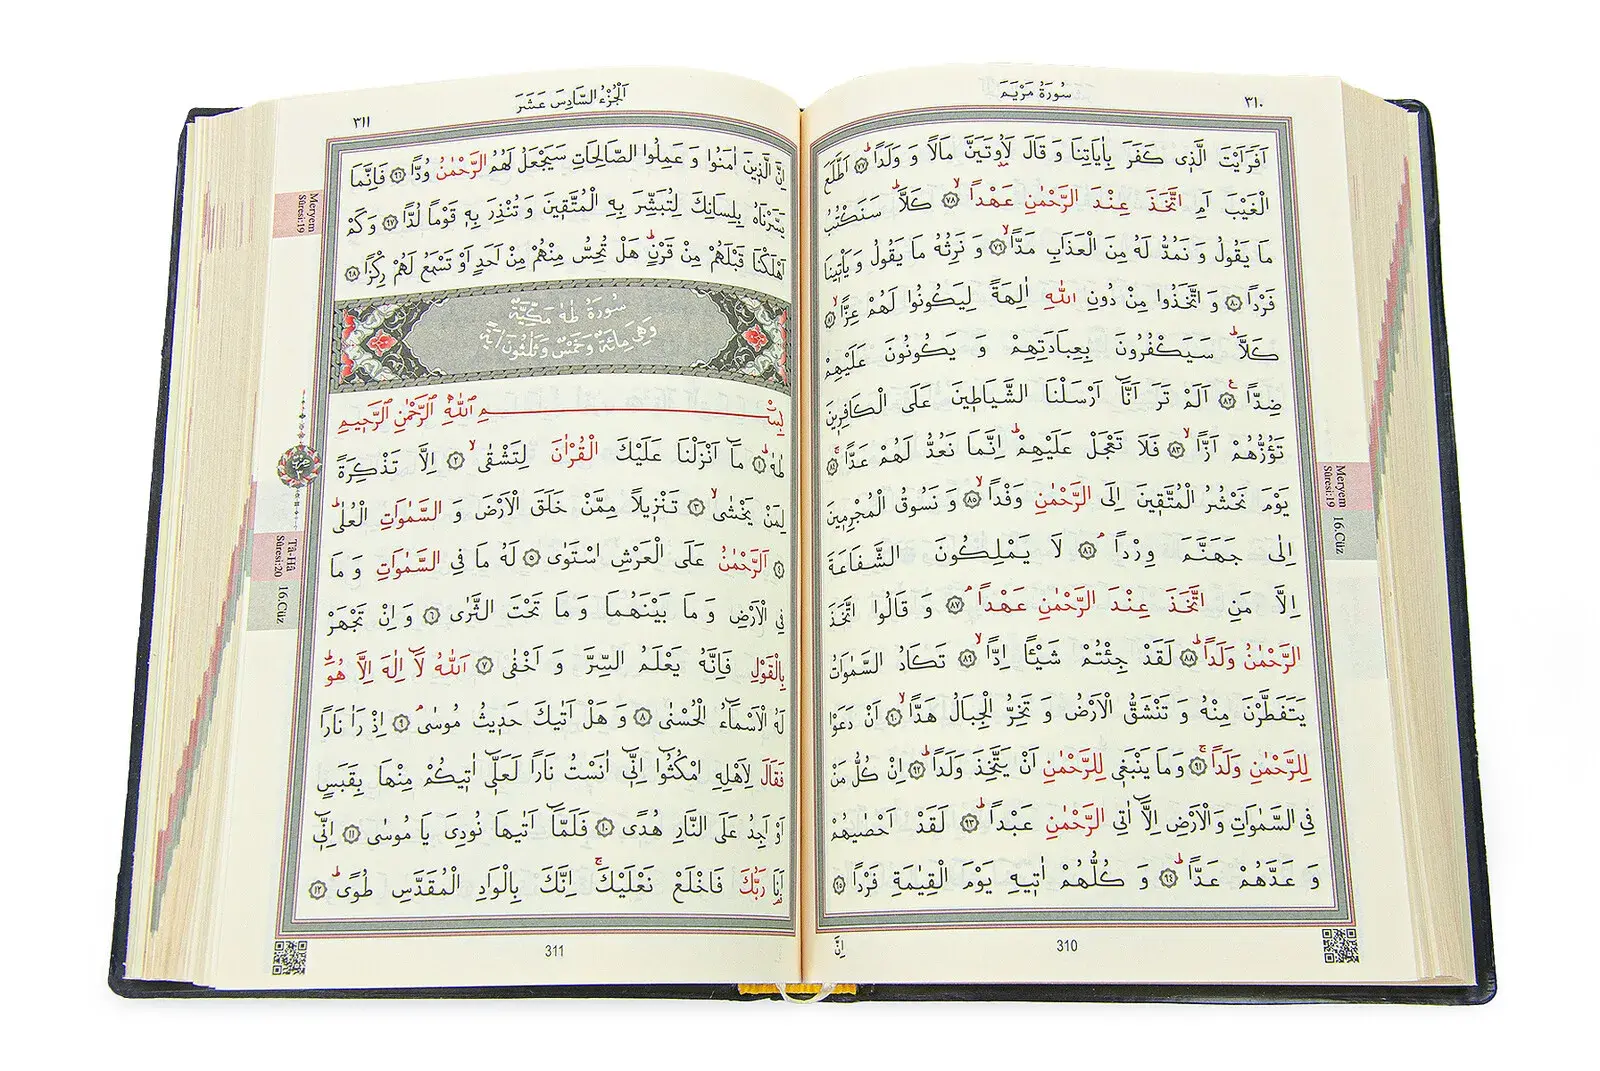 سُورَةُ مَرْيَمَ
٣١٠
اَفَرَاَيْتَ الَّذ۪ي كَفَرَ بِاٰيَاتِنَا وَ قَالَ لَاُو۫تَيَنَّ مَالًا وَ وَلَدًاۜ ﴿٧٧﴾ اَطَّلَعَ
الْغَيْبَ اَمِ اتَّخَذَ عِنْدَ الرَّحْمٰنِ عَهْدًاۙ ﴿٧٨﴾ كَلَّاۜ سَنَكْتُبُ
مَا يَقُولُ وَ نَمُدُّ لَهُ مِنَ الْعَذَابِ مَدًّاۙ ﴿٧٩﴾ وَ نَرِثُهُ مَا يَقُولُ وَ يَأْت۪ينَا
فَرْدًا ﴿٨٠﴾ وَ اتَّخَذُوا مِنْ دُونِ اللّٰهِ اٰلِهَةً لِيَكُونُوا لَهُمْ عِزًّاۙ ﴿٨١﴾
كَلَّاۜ سَيَكْفُرُونَ بِعِبَادَتِهِمْ وَ يَكُونُونَ عَلَيْهِمْ
ضِدًّا۟ ﴿٨٢﴾ اَلَمْ تَرَ اَنَّٓا اَرْسَلْنَا الشَّيَاط۪ينَ عَلَى الْكَافِر۪ينَ
تَؤُزُّهُمْ اَزًّاۙ ﴿٨٣﴾ فَلَا تَعْجَلْ عَلَيْهِمْۜ اِنَّمَا نَعُدُّ لَهُمْ عَدًّاۚ ﴿٨٤﴾
يَوْمَ نَحْشُرُ الْمُتَّق۪ينَ اِلَى الرَّحْمٰنِ وَفْدًاۙ ﴿٨٥﴾ وَ نَسُوقُ الْمُجْرِم۪ينَ
اِلٰى جَهَنَّمَ وِرْدًاۢ ﴿٨٦﴾ لَا يَمْلِكُونَ الشَّفَاعَةَ
اِلَّا مَنِ اتَّخَذَ عِنْدَ الرَّحْمٰنِ عَهْدًاۢ ﴿٨٧﴾ وَ قَالُوا اتَّخَذَ
الرَّحْمٰنُ وَلَدًاۜ ﴿٨٨﴾ لَقَدْ جِئْتُمْ شَيْـًٔا اِدًّاۙ ﴿٨٩﴾ تَكَادُ السَّمٰوَاتُ
يَتَفَطَّرْنَ مِنْهُ وَ تَنْشَقُّ الْاَرْضُ وَ تَخِرُّ الْجِبَالُ هَدًّاۙ ﴿٩٠﴾ اَنْ دَعَوْا
لِلرَّحْمٰنِ وَلَدًاۚ ﴿٩١﴾ وَمَا يَنْبَغ۪ي لِلرَّحْمٰنِ اَنْ يَتَّخِذَ وَلَدًاۜ ﴿٩٢﴾ اِنْ كُلُّ مَنْ
فِي السَّمٰوَاتِ وَالْاَرْضِ اِلَّٓا اٰتِي الرَّحْمٰنِ عَبْدًاۜ ﴿٩٣﴾ لَقَدْ اَحْصٰيهُمْ
وَ عَدَّهُمْ عَدًّاۜ ﴿٩٤﴾ وَ كُلُّهُمْ اٰت۪يهِ يَوْمَ الْقِيٰمَةِ فَرْدًا ﴿٩٥﴾
اِنَّ
310
Meryem
Sûresi:19
16.Cüz
اَلْجُزْءُ السَّادِسَ عَشَرَ
٣١١
اِنَّ الَّذ۪ينَ اٰمَنُوا وَ عَمِلُوا الصَّالِحَاتِ سَيَجْعَلُ لَهُمُ الرَّحْمٰنُ وُدًّا ﴿٩٦﴾ فَاِنَّمَا
يَسَّرْنَاهُ بِلِسَانِكَ لِتُبَشِّرَ بِهِ الْمُتَّق۪ينَ وَ تُنْذِرَ بِه۪ قَوْمًا لُدًّا ﴿٩٧﴾ وَ كَمْ
اَهْلَكْنَا قَبْلَهُمْ مِنْ قَرْنٍۜ هَلْ تُحِسُّ مِنْهُمْ مِنْ اَحَدٍ اَوْ تَسْمَعُ لَهُمْ رِكْزًا ﴿٩٨﴾
سُورَةُ طٰهٰ مَكِّيَّةٌ
وَهِيَ مِائَةٌ وَخَمْسٌ وَثَلٰثُونَ اٰيَةً
بِسْمِ اللّٰهِ الرَّحْمٰنِ الرَّح۪يمِ
طٰهٰ ﴿١﴾ مَٓا اَنْزَلْنَا عَلَيْكَ الْقُرْاٰنَ لِتَشْقٰىۙ ﴿٢﴾ اِلَّا تَذْكِرَةً
لِمَنْ يَخْشٰىۙ ﴿٣﴾ تَنْز۪يلًا مِمَّنْ خَلَقَ الْاَرْضَ وَ السَّمٰوَاتِ الْعُلٰىۜ
﴿٤﴾ اَلرَّحْمٰنُ عَلَى الْعَرْشِ اسْتَوٰى ﴿٥﴾ لَهُ مَا فِي السَّمٰوَاتِ وَ مَا
فِي الْاَرْضِ وَ مَا بَيْنَهُمَا وَ مَا تَحْتَ الثَّرٰى ﴿٦﴾ وَ اِنْ تَجْهَرْ
بِالْقَوْلِ فَاِنَّهُ يَعْلَمُ السِّرَّ وَ اَخْفٰى ﴿٧﴾ اَللّٰهُ لَٓا اِلٰهَ اِلَّا هُوَۜ
لَهُ الْاَسْمَٓاءُ الْحُسْنٰى ﴿٨﴾ وَ هَلْ اَتٰيكَ حَد۪يثُ مُوسٰىۢ ﴿٩﴾ اِذْ رَاٰ نَارًا
فَقَالَ لِاَهْلِهِ امْكُثُٓوا اِنّ۪ٓي اٰنَسْتُ نَارًا لَعَلّ۪ٓي اٰت۪يكُمْ مِنْهَا بِقَبَسٍ
اَوْ اَجِدُ عَلَى النَّارِ هُدًى ﴿١٠﴾ فَلَمَّٓا اَتٰيهَا نُودِيَ يَا مُوسٰى ﴿١١﴾ اِنّ۪ٓي
اَنَا۬ رَبُّكَ فَاخْلَعْ نَعْلَيْكَۚ اِنَّكَ بِالْوَادِ الْمُقَدَّسِ طُوًىۜ ﴿١٢﴾
311
Meryem
Sûresi:19
Tâ-Hâ
Sûresi:20
16.Cüz